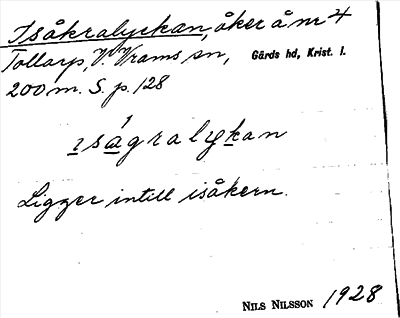 Isåkralyckan, åker å nr 4
Tollarp, V. Vrams sn, Gärds hd, Krist. l.
200 m. S. p. 128
ısågralykan
Ligger intill isåkern.
NILS NILSSON 1928